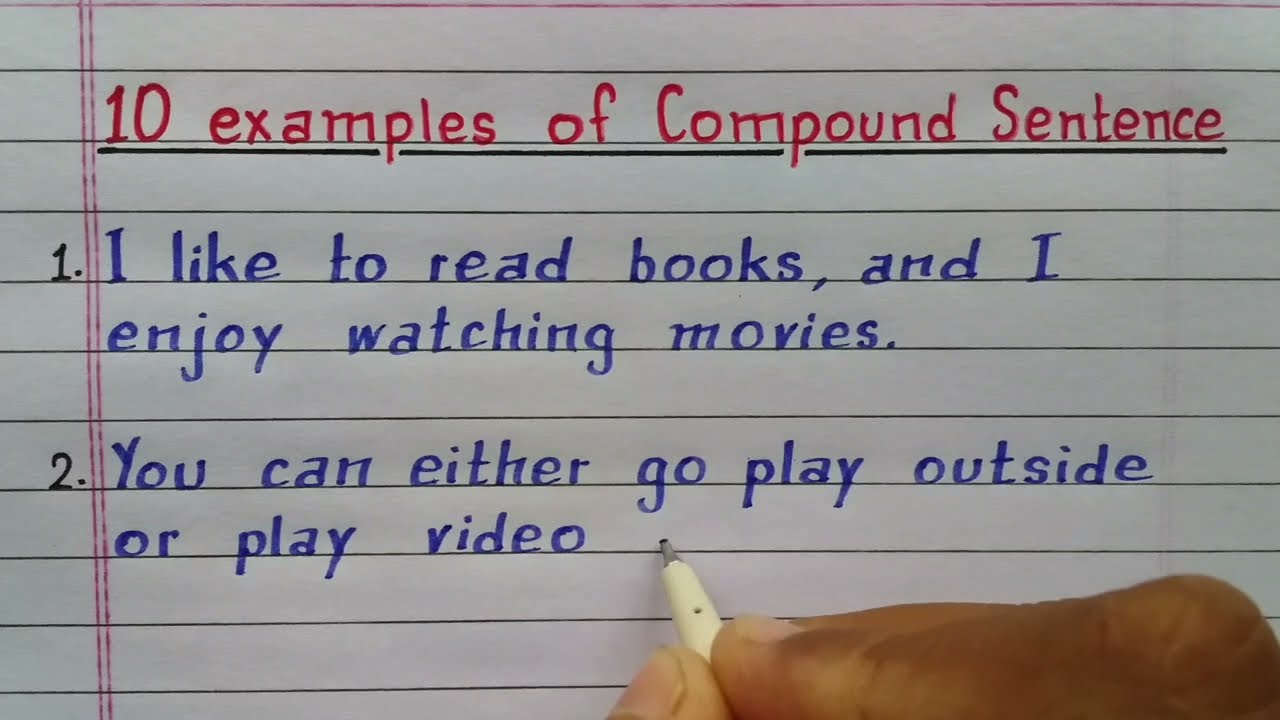 10 examples of Compound Sentence
1. I like to read books, and I
enjoy watching movies.
2. You can either go play outside
or play video